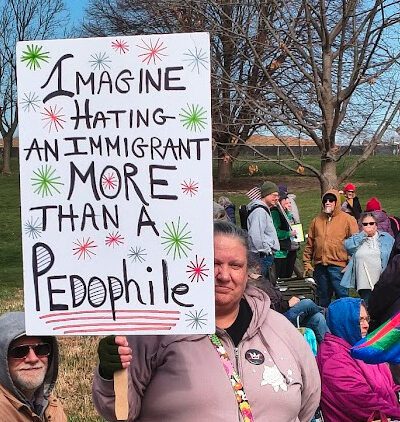 Imagine
Hating
an Immigrant
MORE
THAN A
Pedophile